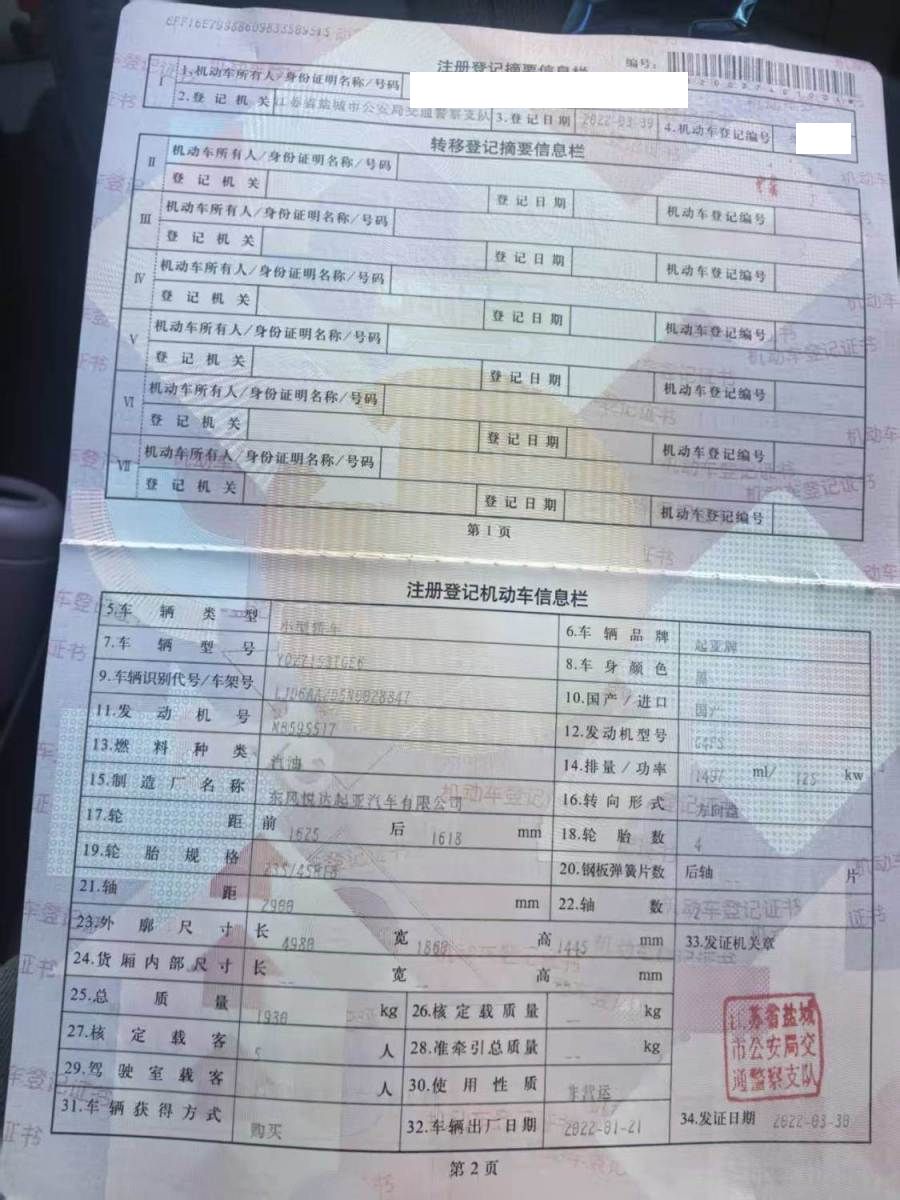 注册登记摘要信息栏
编号:
I
1.机动车所有人/身份证明名称/号码
2.登记机关 江苏省盐城市公安局交通警察支队 3.登记日期 2022-03-30 4.机动车登记编号
转移登记摘要信息栏
II 机动车所有人/身份证明名称/号码
登记机关 登记日期 机动车登记编号
III 机动车所有人/身份证明名称/号码
登记机关 登记日期 机动车登记编号
IV 机动车所有人/身份证明名称/号码
登记机关 登记日期 机动车登记编号
V 机动车所有人/身份证明名称/号码
登记机关 登记日期 机动车登记编号
VI 机动车所有人/身份证明名称/号码
登记机关 登记日期 机动车登记编号
VII 机动车所有人/身份证明名称/号码
登记机关 登记日期 机动车登记编号
第1页
注册登记机动车信息栏
5.车辆类型 小型轿车 6.车辆品牌 起亚牌
7.车辆型号 8.车身颜色 黑
9.车辆识别代号/车架号 10.国产/进口 国产
11.发动机号 12.发动机型号
13.燃料种类 汽油 14.排量/功率 1497 ml/ 125 kw
15.制造厂名称 东风悦达起亚汽车有限公司 16.转向形式 方向盘
17.轮距 前 1625 后 1618 mm 18.轮胎数 4
19.轮胎规格 235/45R18 20.钢板弹簧片数 后轴 -- 片
21.轴距 2900 mm 22.轴数 2
23.外廓尺寸 长 4980 宽 1860 高 1445 mm 33.发证机关章
24.货厢内部尺寸 长 -- 宽 -- 高 -- mm
25.总质量 1930 kg 26.核定载质量 -- kg
27.核定载客 5 人 28.准牵引总质量 -- kg
29.驾驶室载客 -- 人 30.使用性质 非营运
31.车辆获得方式 购买 32.车辆出厂日期 2022-01-21 34.发证日期 2022-03-30
江苏省盐城
市公安局交
通警察支队
第2页